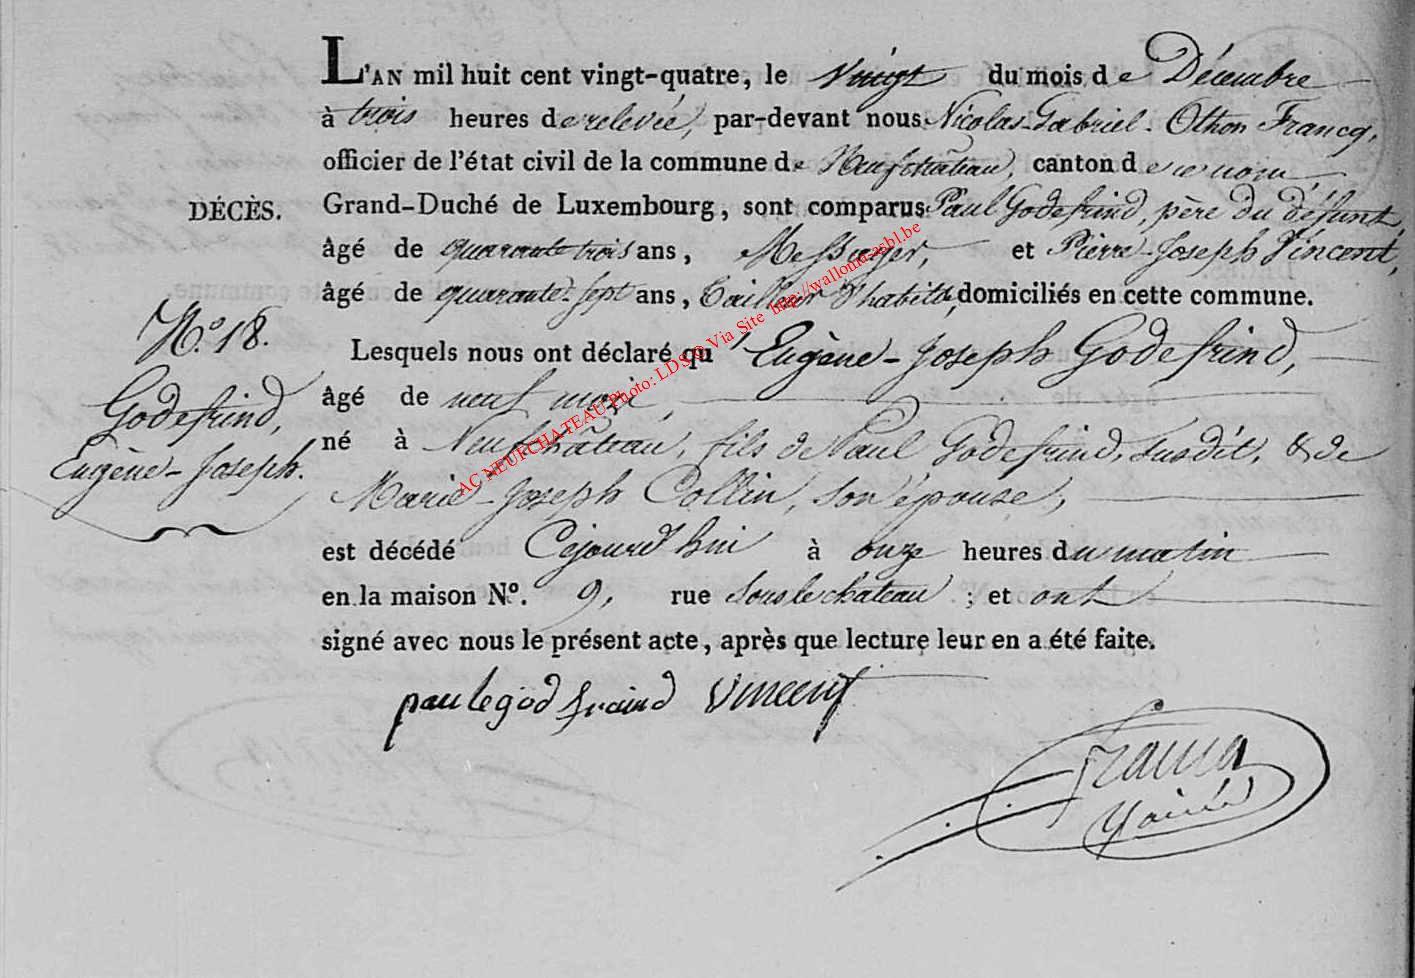 L'AN mil huit cent vingt-quatre, le vingt du mois de Décembre
à trois heures de relevée, par-devant nous Nicolas-Gabriel-Othon Francq,
officier de l'état civil de la commune de Neufchâteau, canton de ce nom
DÉCÈS.
Grand-Duché de Luxembourg, sont comparus Paul Godefrind, père du défunt,
âgé de quarante trois ans, Messager, et Pierre-Joseph Vincent,
âgé de quarante-sept ans, Tailleur d'habits, domiciliés en cette commune.
N.o 18.
Godefrind,
Eugène-Joseph.
Lesquels nous ont déclaré qu'Eugène-Joseph Godefrind,
âgé de neuf mois,
né à Neufchâteau, fils de Paul Godefrind, susdit, & de
Marie-Joseph Collin, son épouse,
est décédé Cejourd'hui à onze heures du matin
en la maison No. 9, rue Sous le chateau ; et ont
signé avec nous le présent acte, après que lecture leur en a été faite.
paulegodfraind Vincent
Francq
AC NEUFCHATEAU Photo: LDS © Via Site http://wallonia-asbl.be